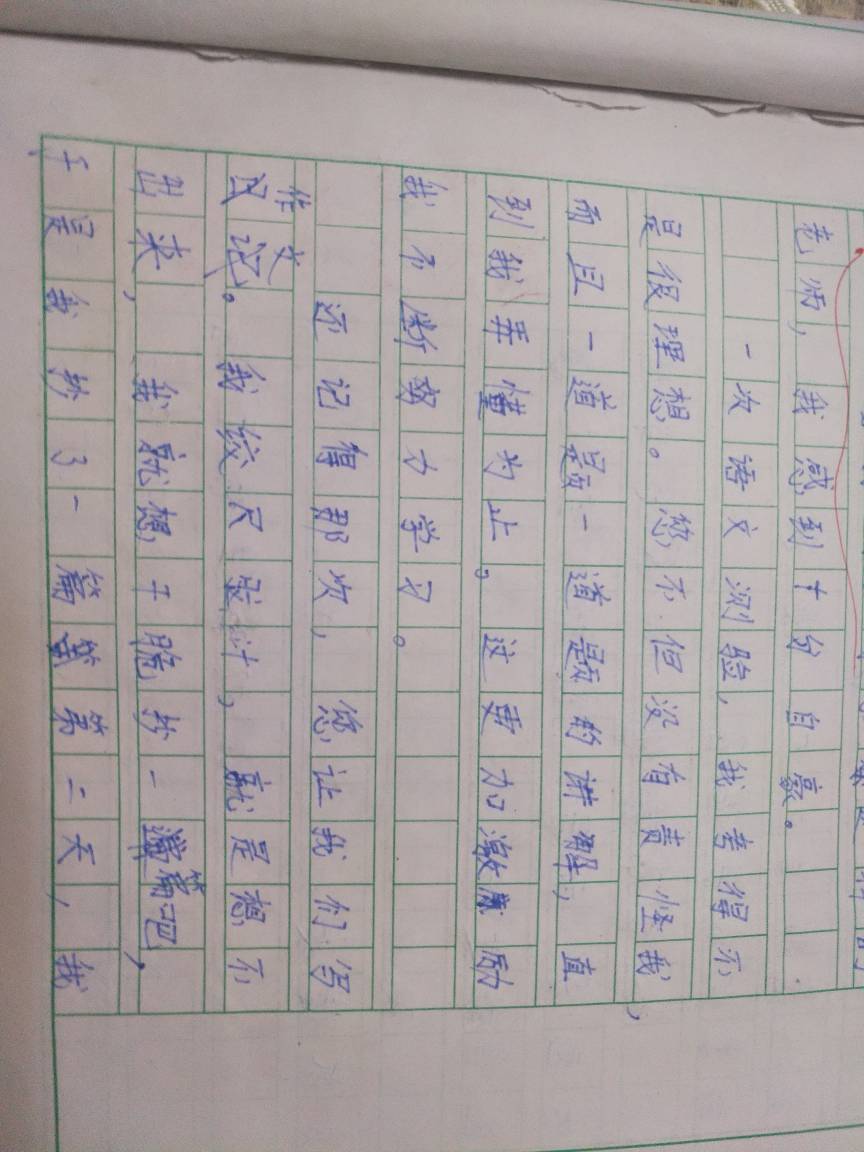 老师，我感到十分自豪。
一次语文测验，我考得不
是很理想。您不但没有责怪我，
而且一道题一道题的讲解，直
到我弄懂为止。这更加激励
我不断努力学习。
还记得那次，您让我们写
作文
我绞尽脑汁，就是想不
出来，我就想干脆抄一篇吧，
于是我抄了一篇第二天，我